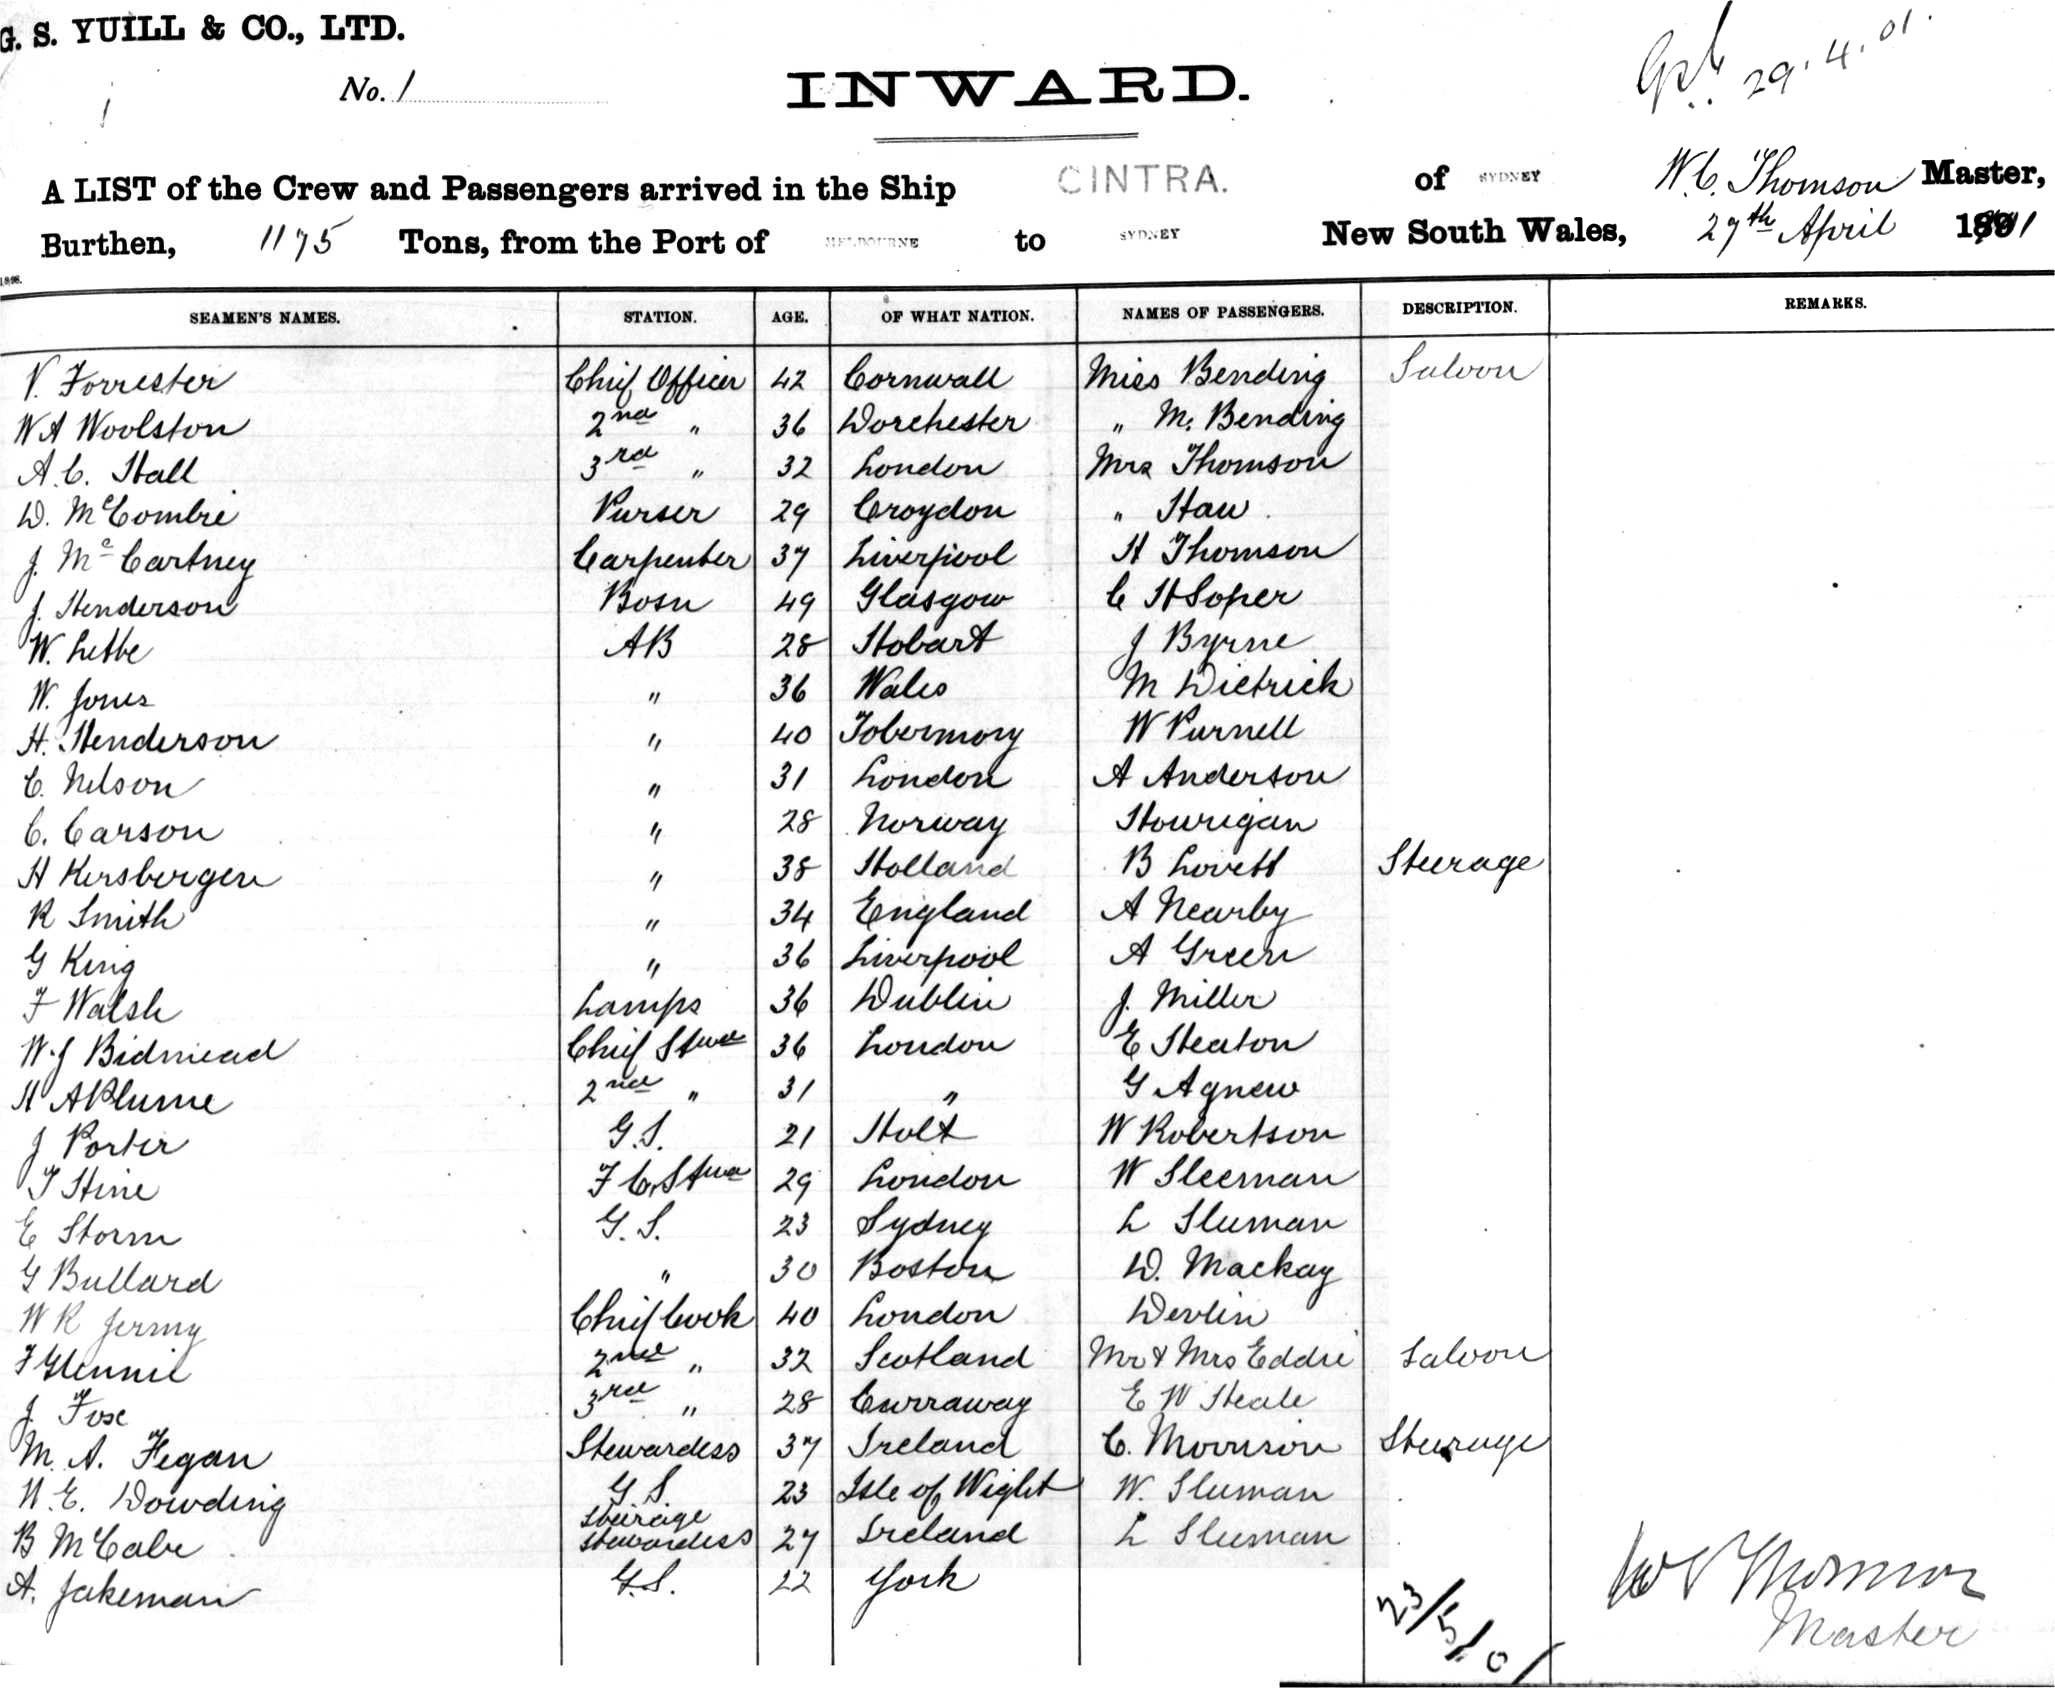 G. S. YUILL & CO., LTD.
No. 1
INWARD.
29.4.01.
A LIST of the Crew and Passengers arrived in the Ship CINTRA. of SYDNEY W. C. Thomson Master,
Burthen, 1175 Tons, from the Port of MELBOURNE to SYDNEY New South Wales, 27th April 1
1898.
SEAMEN'S NAMES. STATION. AGE. OF WHAT NATION. NAMES OF PASSENGERS. DESCRIPTION. REMARKS.
V. Forrester Chief Officer 42 Cornwall Miss Bending Saloon
W A Woolston 2nd " 36 Dorchester " M. Bending
A. C. Hall 3rd " 32 London Mrs Thomson
D. McCombie Purser 29 Croydon "
J. Mc Cartney Carpenter 37 Liverpool H Thomson
J. Henderson Bosn 49 Glasgow C H Soper
W. AB 28 Hobart J Byrne
W. Jones " 36 Wales M Dietrick
H. Henderson " 40 Tobermory W Purnell
C. Nelson " 31 London A Anderson
C. Carson " 28 Norway Hourigan
H Kersbergen " 38 Holland B Lovett Steerage
R Smith " 34 England A Nearby
G King " 36 Liverpool A Green
F Walsh Lamps 36 Dublin J. Miller
W. J Bidmead Chief Stwd 36 London E Heaton
H A Plume 2nd " 31 " G Agnew
J Porter G. S. 21 Holt W Robertson
T Hine F C. Stwd 29 London W Sleeman
E Storm G. S. 23 Sydney L Sleeman
G Bullard " 30 Boston D. Mackay
W R Jermy Chief Cook 40 London Devlin
F Glennie 2nd " 32 Scotland Mr & Mrs Eddie Saloon
J. Fox 3rd " 28 Curraway E W Heale
M. A. Fegan Stewardess 37 Ireland C. Morrison Steerage
N. E. Dowding G S. 23 Isle of Wight W. Sleeman
B McCabe Steerage Stewardess 27 Ireland L Sleeman
A. Jakeman G. S. 22 York
23/5/01
W C Thomson
Master